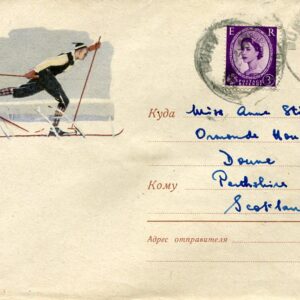 E R
3D
Куда Miss Anne
Ormonde
Doune
Кому Perthshire
Scotland
Адрес отправителя